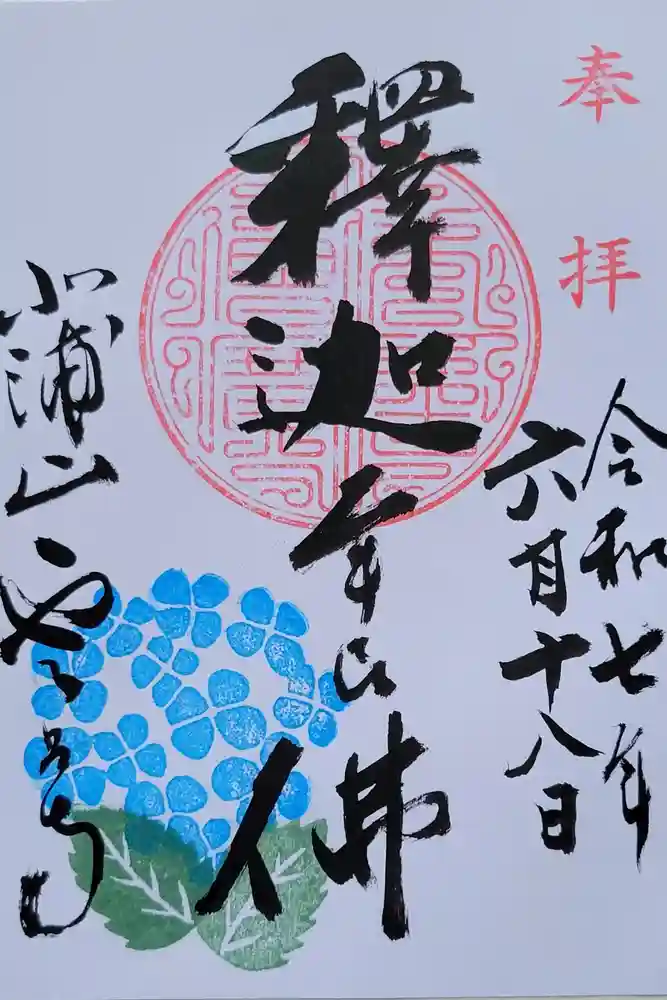 奉拝
令和七年
六月十八日
釋迦牟尼佛
浦山